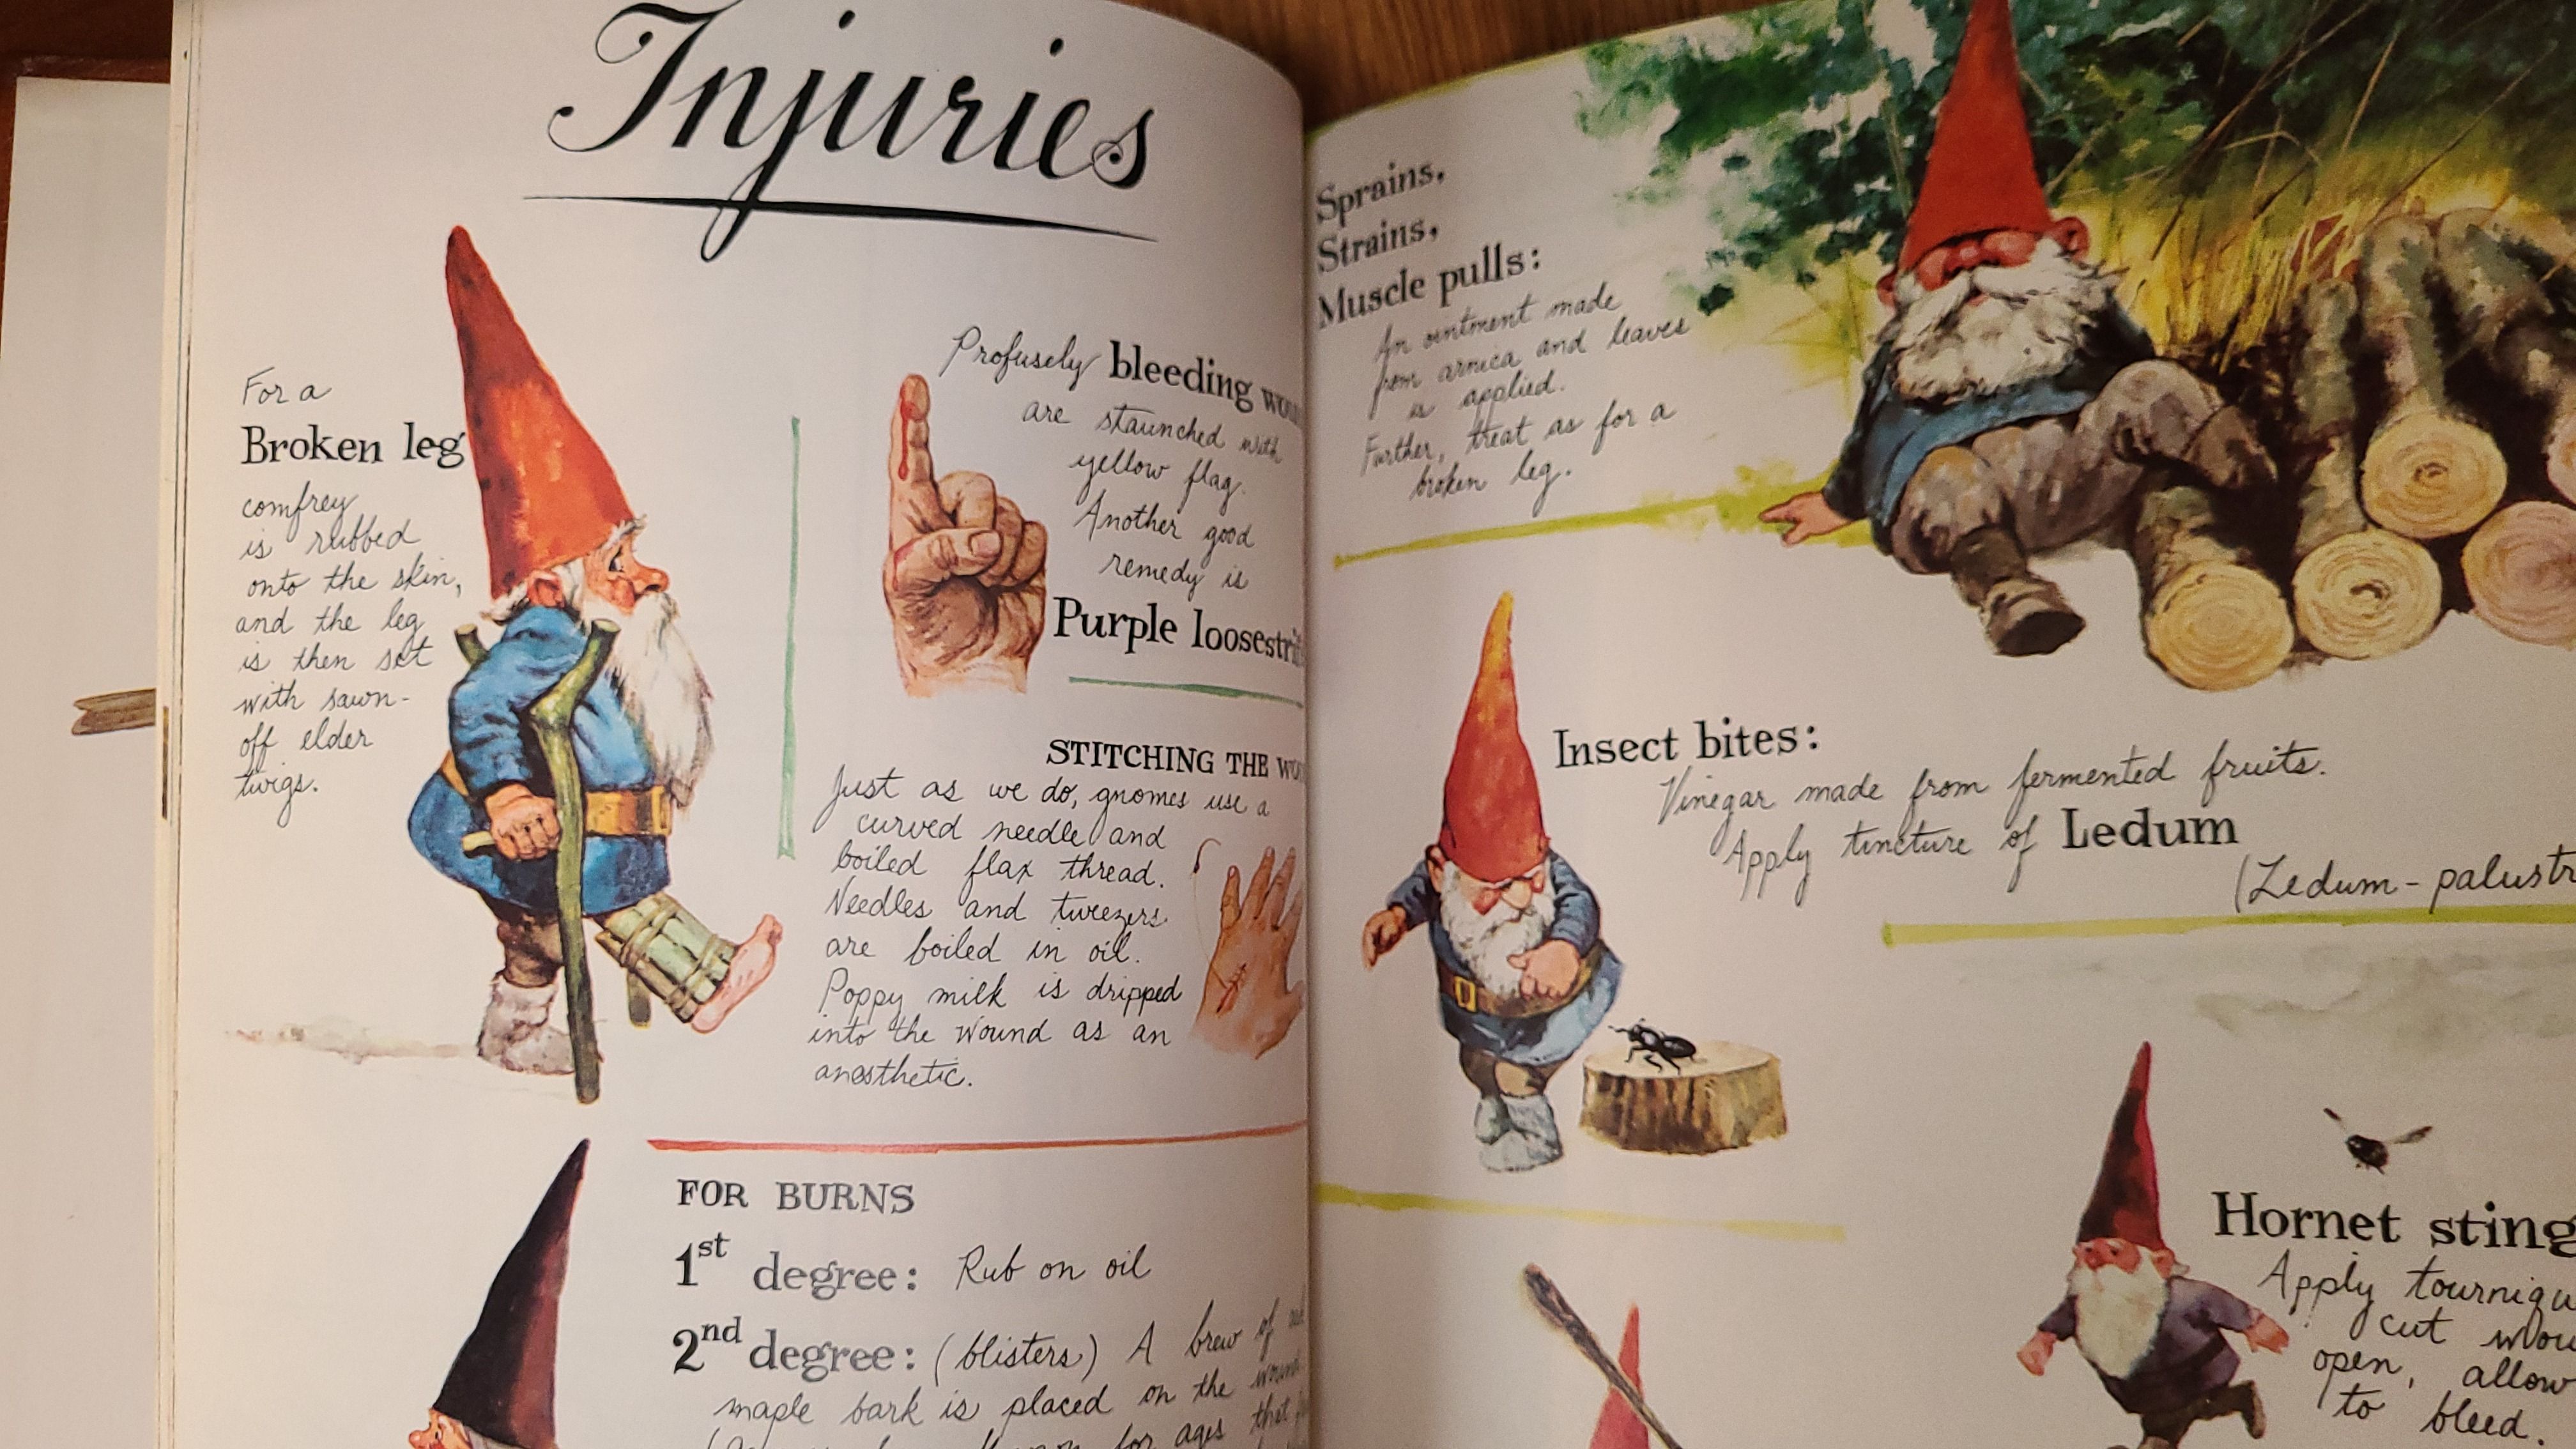 Injuries
For a
Broken leg
comfrey
is rubbed
onto the skin,
and the leg
is then set
with sawn-
off elder
twigs.
Profusely bleeding
are staunched with
yellow flag.
Another good
remedy is
Purple
STITCHING THE
Just as we do, gnomes use a
curved needle and
boiled flax thread.
Needles and tweezers
are boiled in oil.
Poppy milk is dripped
into the wound as an
anesthetic.
FOR BURNS
1st degree: Rub on oil
2nd degree: (blisters) A brew of
maple bark is placed on the
for ages that
Sprains,
Strains,
Muscle pulls:
An ointment made
from arnica and leaves
is applied.
Further, treat as for a
broken leg.
Insect bites:
Vinegar made from fermented fruits.
Apply tincture of Ledum
(Ledum-palustr
Hornet sting
Apply
cut
open, allow
to bleed.